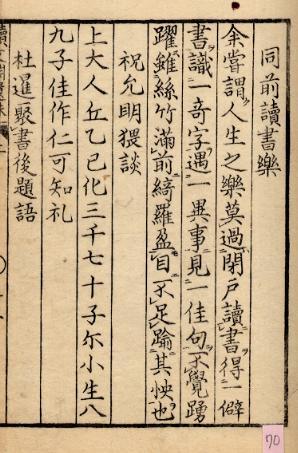 同前讀書樂
余嘗謂人生之樂莫過閉戶讀書得一僻
書識一奇字遇一異事見一佳句不覺踴
躍雖絲竹滿前綺羅盈目不足踰其怏也
祝允明猥談
上大人丘乙已化三千七十子尔小生八
九子佳作仁可知礼
杜暹聚書後題語
70